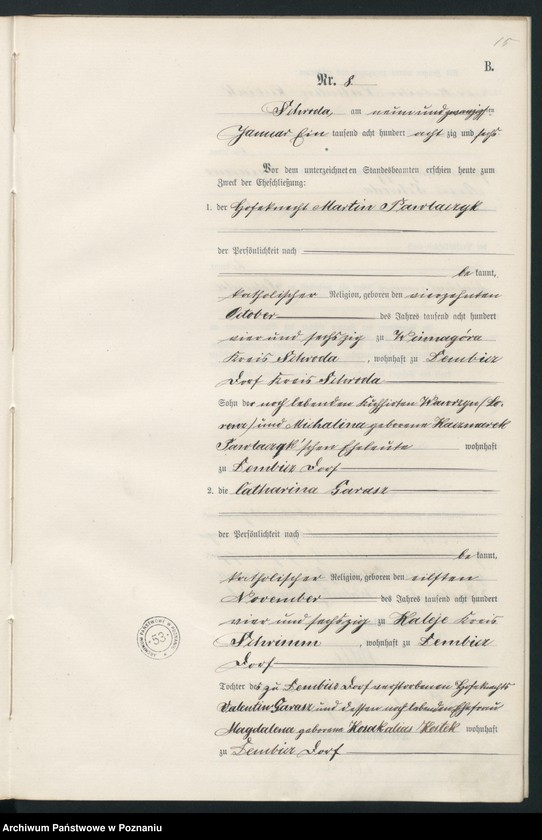 15
B.
Nr. 8.
Schroda, am neunundzwanzigsten
Januar Ein tausend acht hundert acht zig und sechs
Vor dem unterzeichneten Standesbeamten erschien heute zum
Zweck der Eheschließung:
1. der Hofeknecht Martin Pawlaczyk
der Persönlichkeit nach
be kannt,
katholischer Religion, geboren den vierzehnten
October des Jahres tausend acht hundert
vier und sechszig zu Winnagóra
Kreis Schroda, wohnhaft zu Dembicz
Dorf Kreis Schroda
Sohn der noch lebenden Kuhhirten Wawrzyn (Lo-
renz) und Michalina geborene Kaczmarek
Pawlaczyk'schen Eheleute wohnhaft
zu Dembicz Dorf
2. die Catharina Garasz
der Persönlichkeit nach
be kannt,
katholischer Religion, geboren den elften
November des Jahres tausend acht hundert
vier und sechszig zu Kaleje Kreis
Schrimm, wohnhaft zu Dembicz
Dorf
Tochter des zu Dembicz Dorf verstorbenen Hofeknechts
Valentin Garasz und dessen noch lebenden Ehefrau
Magdalena geborene alias Kostek wohnhaft
zu Dembicz Dorf
ARCHIWUM PAŃSTWOWE W POZNANIU
53
Archiwum Państwowe w Poznaniu